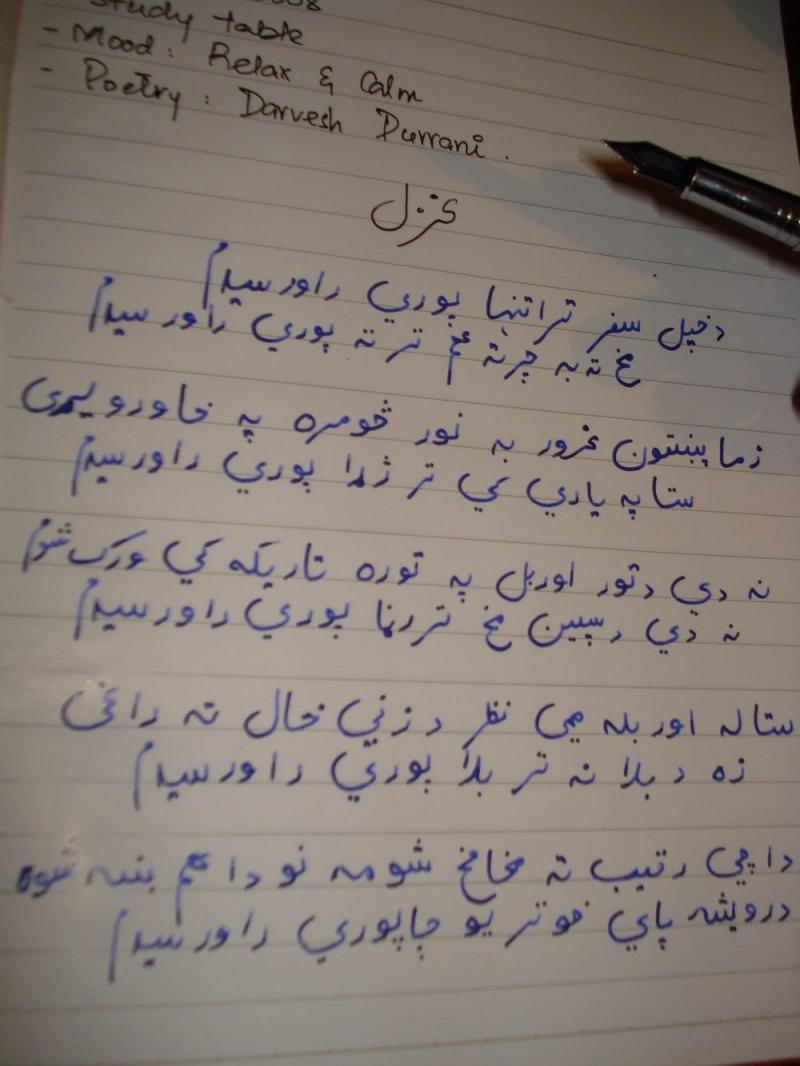 Study table
- Mood: Relax & Calm
- Poetry: Darvesh Durrani.
غزل
دخپل سفر تر انتها پوري راورسيدم
مخ ته به چرته مخ تر ته پوري راورسيدم
زما پښتون غرور به نور څومره په خاورو ليږی
ستا په ياري کي تر ژړا پوري راورسيدم
نه دي د تور اوربل په توره تاريکه کي ورک شوم
نه دي د سپين مخ تر رڼا پوري راورسيدم
ستا له اوربله مي نظر د زني خال ته راغی
زه د بلا نه تر بلا پوري راورسيدم
دا چي رقيب ته مخامخ شومه نو دا هم ښه شوه
درويشه پاي خو تر يو چا پوري راورسيدم